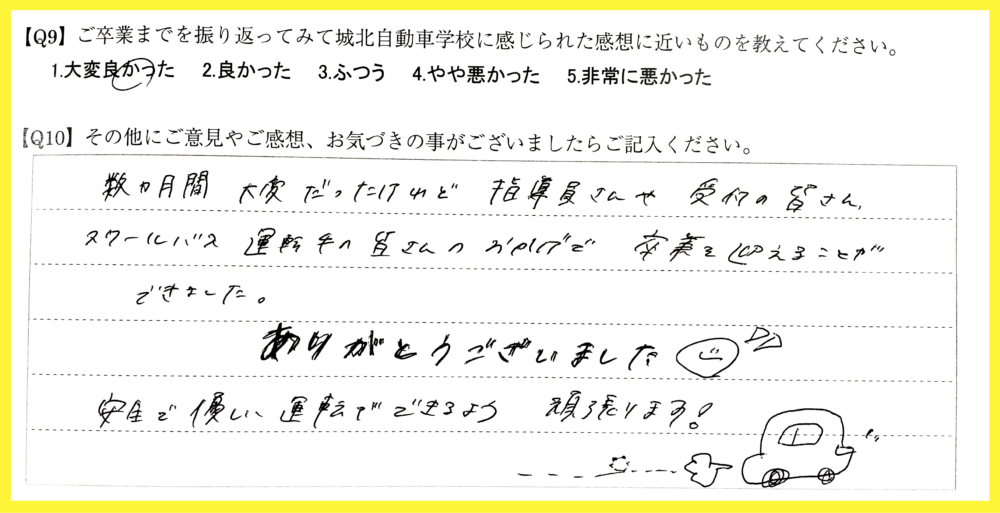 【Q9】ご卒業までを振り返ってみて城北自動車学校に感じられた感想に近いものを教えてください。
1.大変良かった 2.良かった 3.ふつう 4.やや悪かった 5.非常に悪かった
【Q10】その他にご意見やご感想、お気づきの事がございましたらご記入ください。
数カ月間 大変だったけれど 指導員さんや 受付の皆さん、
スクールバス 運転手の皆さんのおかげで 卒業を迎えることが
できました。
ありがとうございました
安全で優しい運転ができるよう 頑張ります!